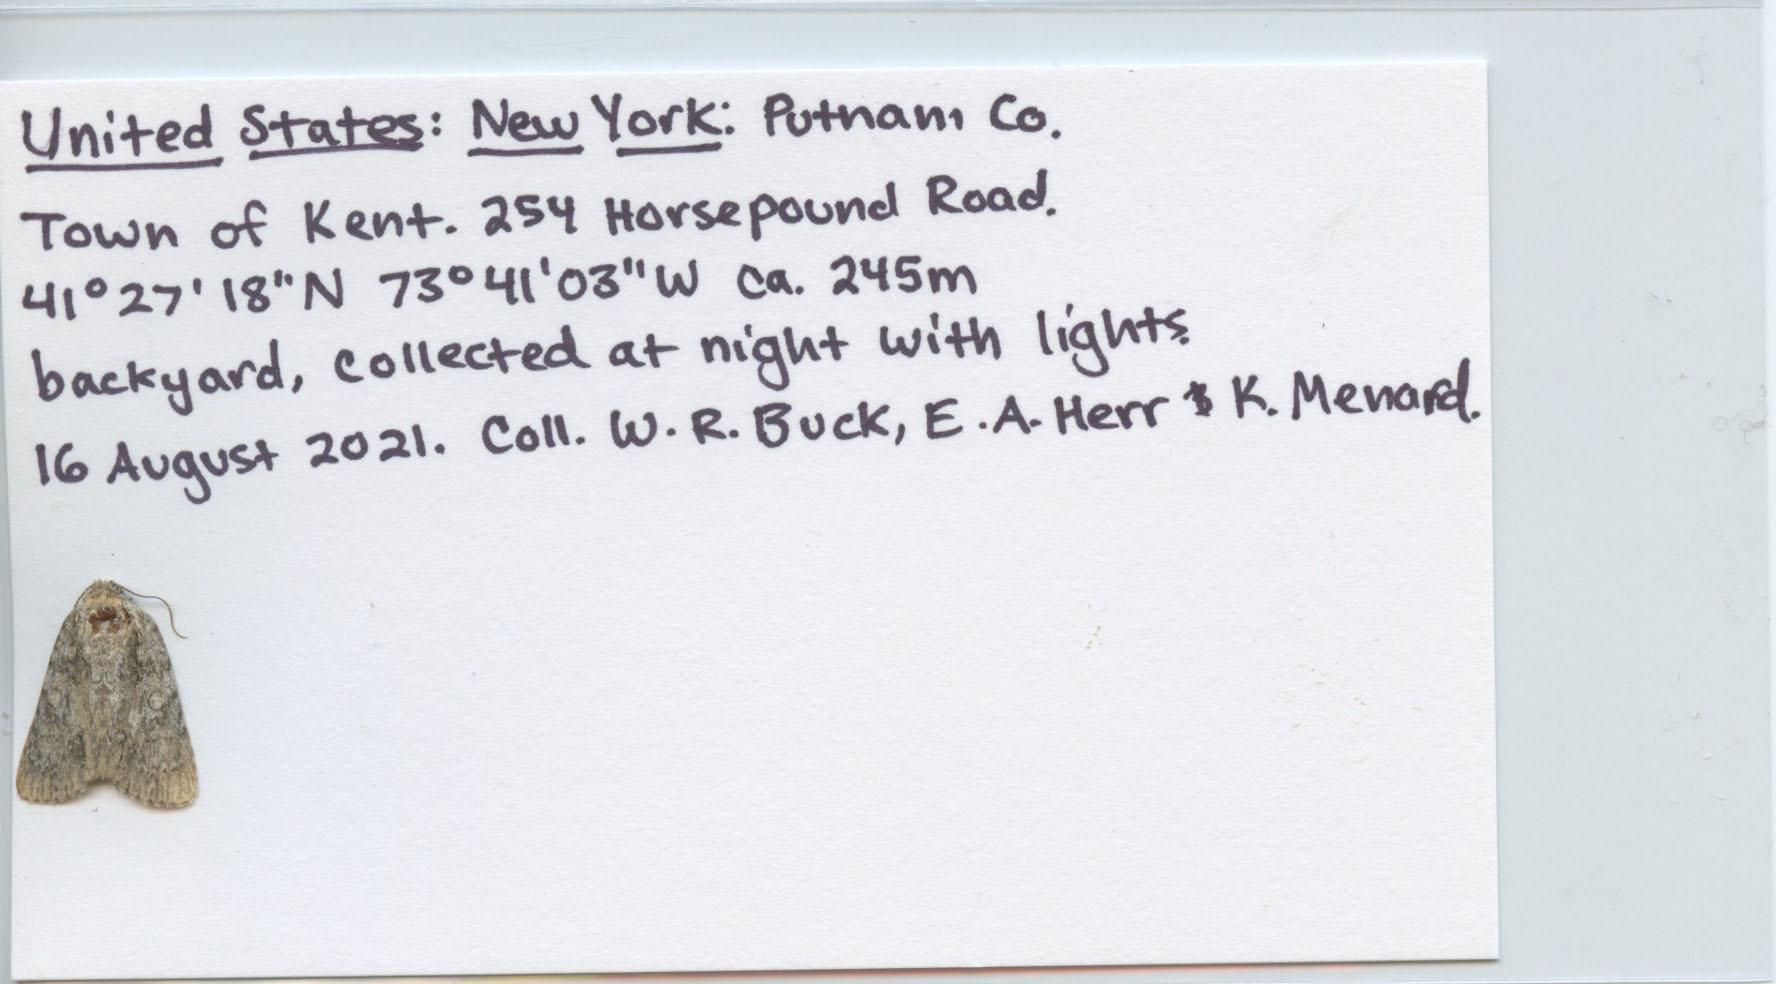 United States: New York: Putnam Co.
Town of Kent. 254 Horsepound Road.
41°27'18"N 73°41'03"W ca. 245m
backyard, collected at night with lights.
16 August 2021. Coll. W. R. Buck, E. A. Herr & K. Menard.